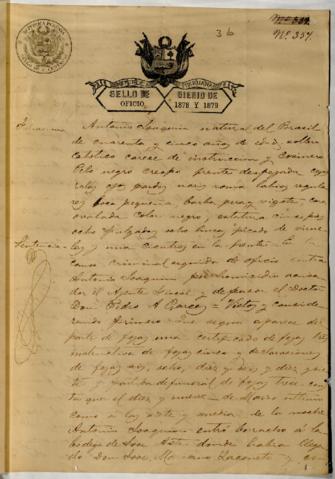 36
Nº 357.
SELLO DE OFICIO
BIENIO DE 1878 Y 1879
Antonio Joaquin natural del Brasil
de cuarenta y cinco años de edad, soltero
católico carece de instruccion y cocinero
Pelo negro crespo frente despejada
ojos pardos nariz roma labios regula
res boca pequeña, barba poca y vigote, cara
ovalada color negro, estatura cinco pies
ocho pulgadas, picado de virue
las y una cicatriz en la frente En la
causa criminal seguida de oficio contra
Antonio Joaquin por homicidio acusa
dor el Ajente Fiscal y defensor el Doctor
Don Pedro A. Garcia Vistos y consi
derando primero Que segun aparece del
parte de fojas una certificado de fojas tres
de fojas cinco y declaraciones
de fojas seis, ocho, diez y seis y diez y sie
te y partida de funeral de fojas trece
que el diez y nueve de Marzo ultimo
como á las siete y media de la noche
Antonio Joaquin entró borracho á la
bodega de José donde habia llega
do Don José Mariano y